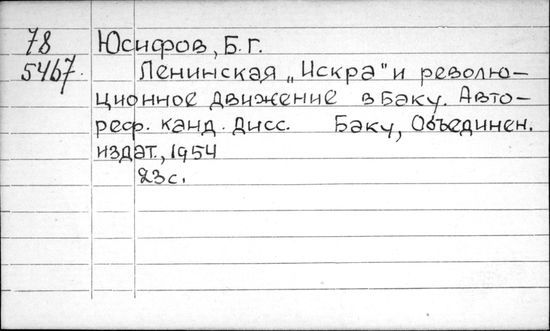 78 Юсифов, Б. Г.
5467. Ленинская „Искра" и револю-
ционное движение в Баку. Авто-
реф. канд. дисс. Баку, Объединен.
издат., 1954
23 с.